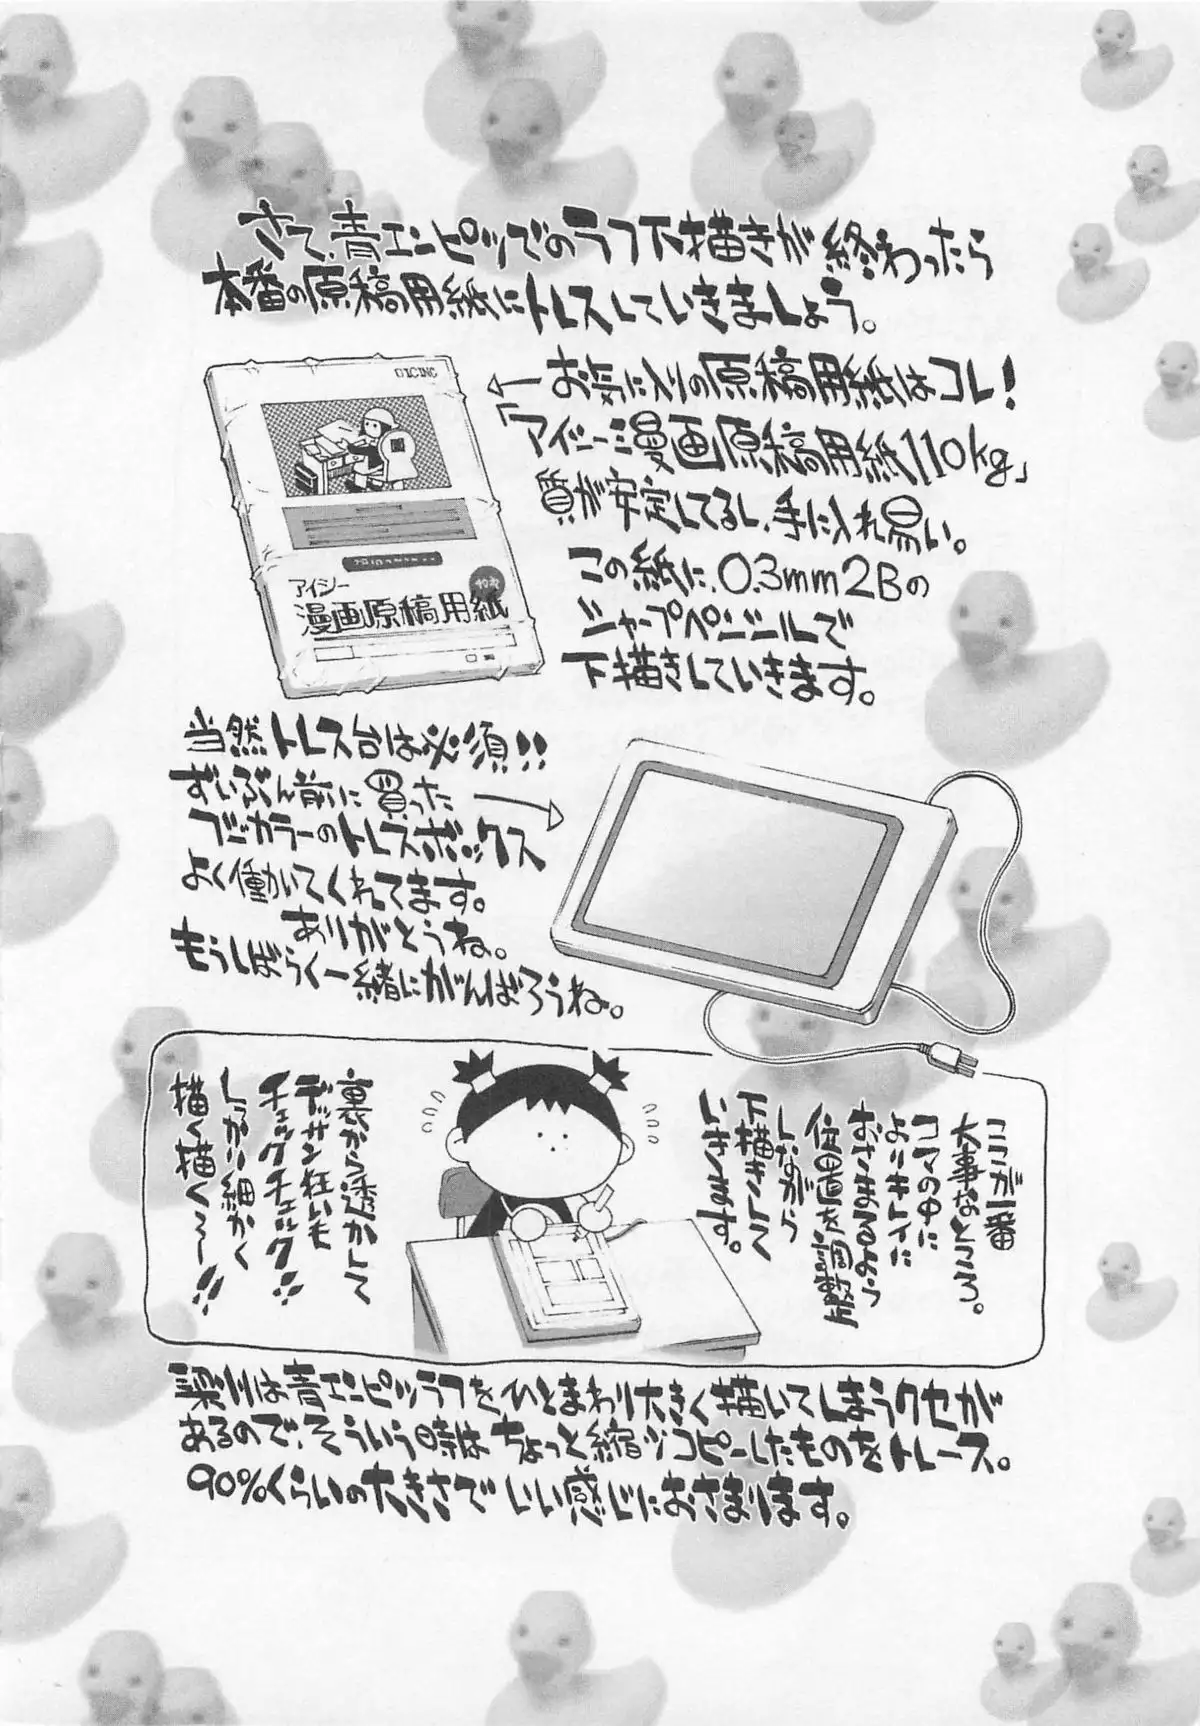 さて、青エンピツでのラフ下描きが終わったら
本番の原稿用紙にトレスしていきましょう。
お気に入りの原稿用紙はコレ!
「アイシー漫画原稿用紙110kg」
質が安定してるし、手に入れ易い。
この紙に、0.3mm2Bの
シャープペンシルで
下描きしていきます。
ICINC
アイシー
漫画原稿用紙
当然トレス台は必須!!
ずいぶん前に買った
コバカラーのトレスボックス
よく働いてくれてます。
ありがとうね。
もうしばらく一緒にがんばろうね。
ここが一番
大事なところ。
コマの中に
よりキレイに
おさまるよう
位置を調整
しながら
下描きして
いきます。
裏から透かして
デッサン狂いも
チェックチェック!!
しっかり細かく
描く描く〜〜!!
は青エンピツラフをひとまわり大きく描いてしまうクセが
あるので、そういう時はちょっと縮小コピーしたものをトレース。
90%くらいの大きさでいい感じにおさまります。